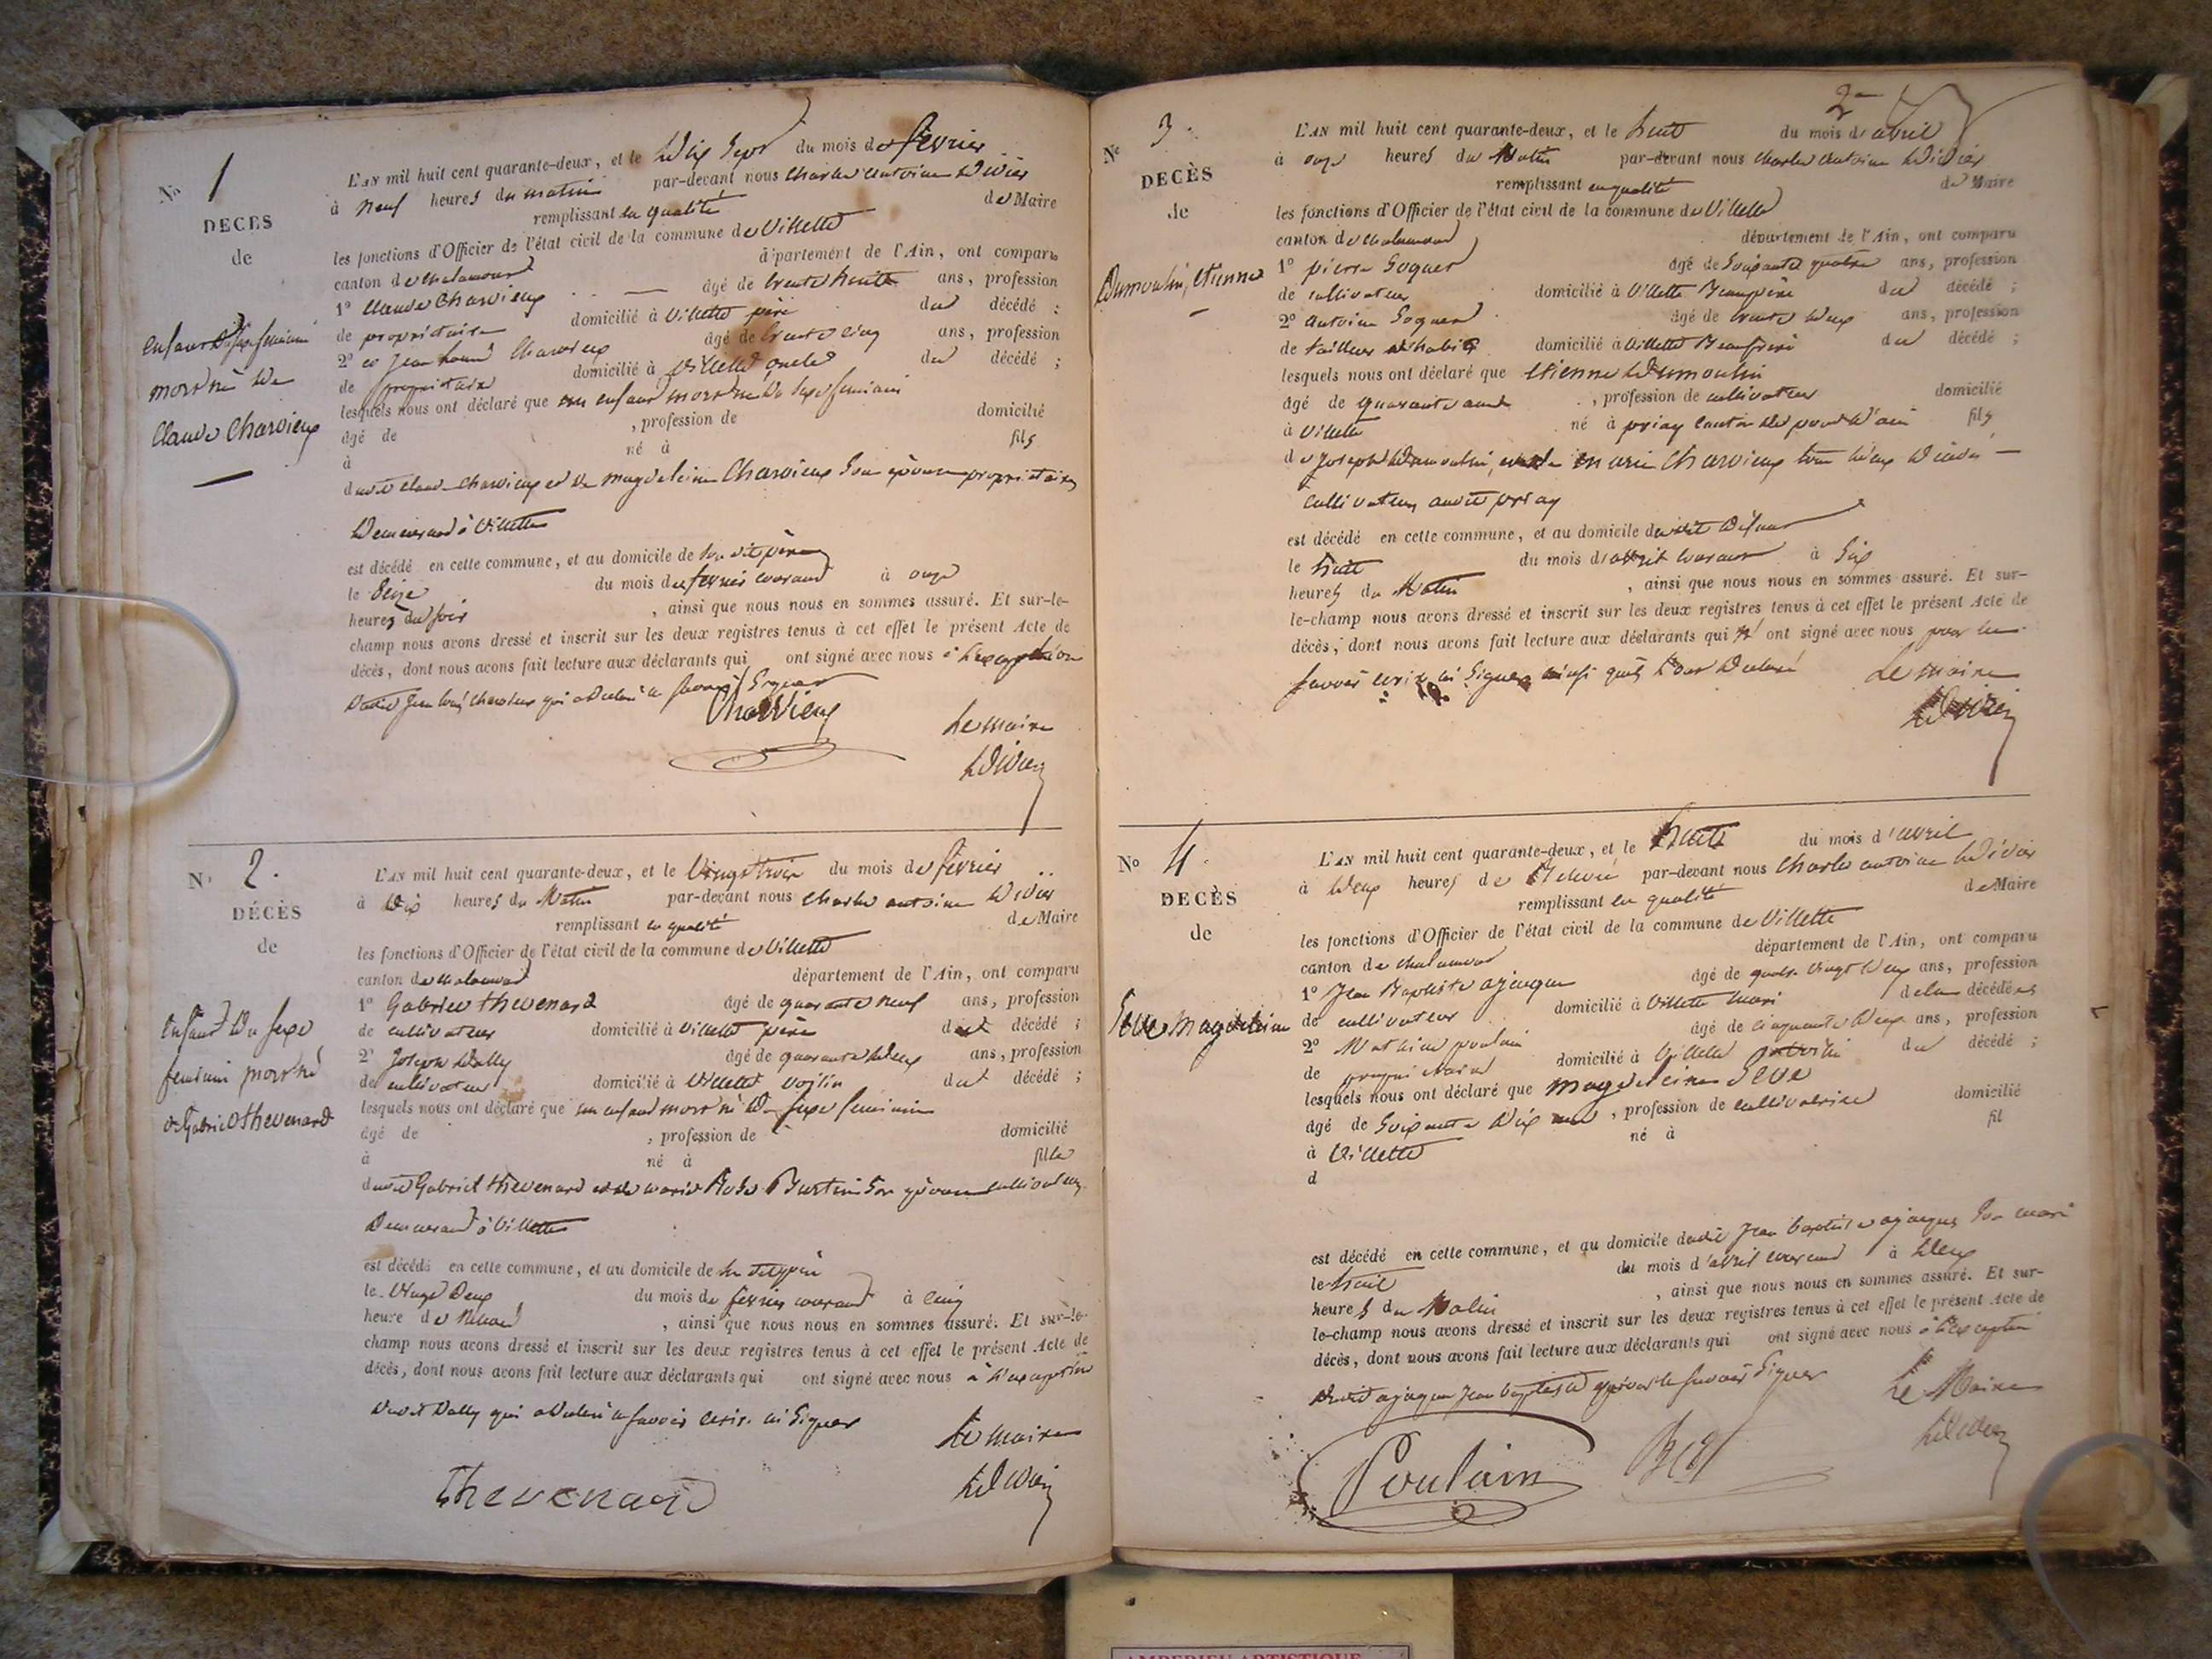 No 1
DECES
de
enfant du sexe feminin
mort né de
Claude Charvieux
L'AN mil huit cent quarante-deux, et le dix sept du mois de février
à neuf heures du matin par-devant nous Charles antoine Didier
remplissant en qualité de Maire
les fonctions d'Officier de l'état civil de la commune de Villette
canton de chalamont département de l'Ain, ont comparu
1º Claude Charvieux âgé de trente huit ans, profession
de propriétaire domicilié à Villette père du décédé ;
2º et Jean Louis Charvieux âgé de trente cinq ans, profession
de propriétaire domicilié à Villette oncle du décédé ;
lesquels nous ont déclaré que un enfant mort né du sexe feminin
âgé de , profession de domicilié
à né à fils
dudit claude Charvieux et de magdeleine Charvieux son épouse propriétaires
demeurand à Villette
est décédé en cette commune, et au domicile de son dit père
le seize du mois de fevrier courant à onze
heures du soir , ainsi que nous nous en sommes assuré. Et sur-le-
champ nous avons dressé et inscrit sur les deux registres tenus à cet effet le présent Acte de
décès, dont nous avons fait lecture aux déclarants qui ont signé avec nous à l'exception
dudit Jean Louis Charvieux qui a déclaré ne savoir signer
Charvieux
Le maire
Didier
No 2.
DÉCÈS
de
enfant du sexe
feminin mort né
de Gabriel thevenard
L'AN mil huit cent quarante-deux, et le vingt trois du mois de février
à dix heures du Matin par-devant nous Charles antoine Didier
remplissant en qualité de Maire
les fonctions d'Officier de l'état civil de la commune de Villette
canton de chalamont département de l'Ain, ont comparu
1º Gabriel thevenard âgé de quarante neuf ans, profession
de cultivateur domicilié à Villette père du décédé ;
2º Joseph Dally âgé de quarante deux ans, profession
de cultivateur domicilié à Villette voisin du décédé ;
lesquels nous ont déclaré que un enfant mort né du sexe feminin
âgé de , profession de domicilié
à né à fille
dudit Gabriel thevenard et de marie Rose Burtin son épouse cultivateurs
demeurand à Villette
est décédé en cette commune, et au domicile de son dit père
le vingt deux du mois de février courant à cinq
heure de , ainsi que nous nous en sommes assuré. Et sur-le-
champ nous avons dressé et inscrit sur les deux registres tenus à cet effet le présent Acte de
décès, dont nous avons fait lecture aux déclarants qui ont signé avec nous à l'exception
dudit Dally qui a déclaré ne savoir ecrire ni signer
Thevenard
Le maire
Didier
2
No 3.
DECÈS
de
Dumoulin, Etienne
L'AN mil huit cent quarante-deux, et le huit du mois d'avril
à onze heures du Matin par-devant nous Charles antoine Didier
remplissant en qualité de Maire
les fonctions d'Officier de l'état civil de la commune de Villette
canton de chalamont département de l'Ain, ont comparu
1º pierre Goguet âgé de Soixante quatre ans, profession
de cultivateur domicilié à Villette Beaupère du décédé ;
2º antoine Goguet âgé de trente deux ans, profession
de tailleur d'habits domicilié à Villette Beaufrère du décédé ;
lesquels nous ont déclaré que Etienne Dumoulin
âgé de quarante ans , profession de cultivateur domicilié
à Villette né à priay canton de pont d'ain fils
de Joseph Dumoulin, et de marie Charvieux tous deux décédés
cultivateurs audit priay
est décédé en cette commune, et au domicile dudit défunt
le huit du mois d'avril courant à Six
heures du Matin , ainsi que nous nous en sommes assuré. Et sur-
le-champ nous avons dressé et inscrit sur les deux registres tenus à cet effet le présent Acte de
décès, dont nous avons fait lecture aux déclarants qui n'ont signé avec nous pour ne
savoir ecrire ni signer ainsi qu'ils l'ont déclaré
Le maire
Didier
No 4.
DECÈS
de
Seve Magdeleine
L'AN mil huit cent quarante-deux, et le huit du mois d'avril
à deux heures de par-devant nous Charles antoine Didier
remplissant en qualité de Maire
les fonctions d'Officier de l'état civil de la commune de Villette
canton de chalamont département de l'Ain, ont comparu
1º Jean Baptiste ajacques âgé de quatre vingt deux ans, profession
de cultivateur domicilié à Villette mari de la décédée
2º Mathieu poulain âgé de cinquante deux ans, profession
de propriétaire domicilié à Villette du décédé ;
lesquels nous ont déclaré que magdeleine Seve
âgé de Soixante dix ans , profession de cultivatrice domicilié
à Villette né à fil
d
est décédé en cette commune, et au domicile dudit Jean baptiste ajacques son mari
le huit du mois d'avril courant à deux
heures du Matin , ainsi que nous nous en sommes assuré. Et sur-
le-champ nous avons dressé et inscrit sur les deux registres tenus à cet effet le présent Acte de
décès, dont nous avons fait lecture aux déclarants qui ont signé avec nous à l'exception
dudit ajacques Jean baptiste savoir signer
Poulain
Le Maire
Didier
AMBERIEU ARTISTIQUE